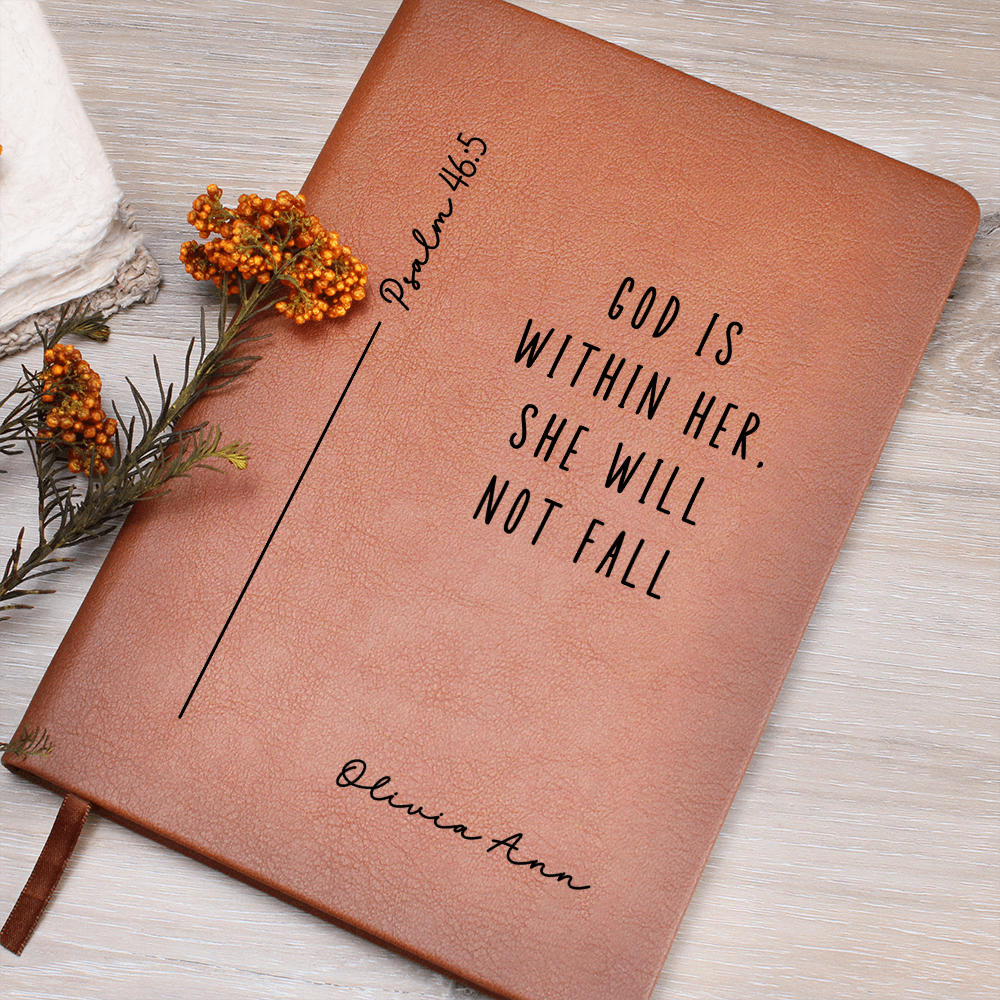 Psalm 46:5
GOD IS
WITHIN HER.
SHE WILL
NOT FALL
Olivia Ann